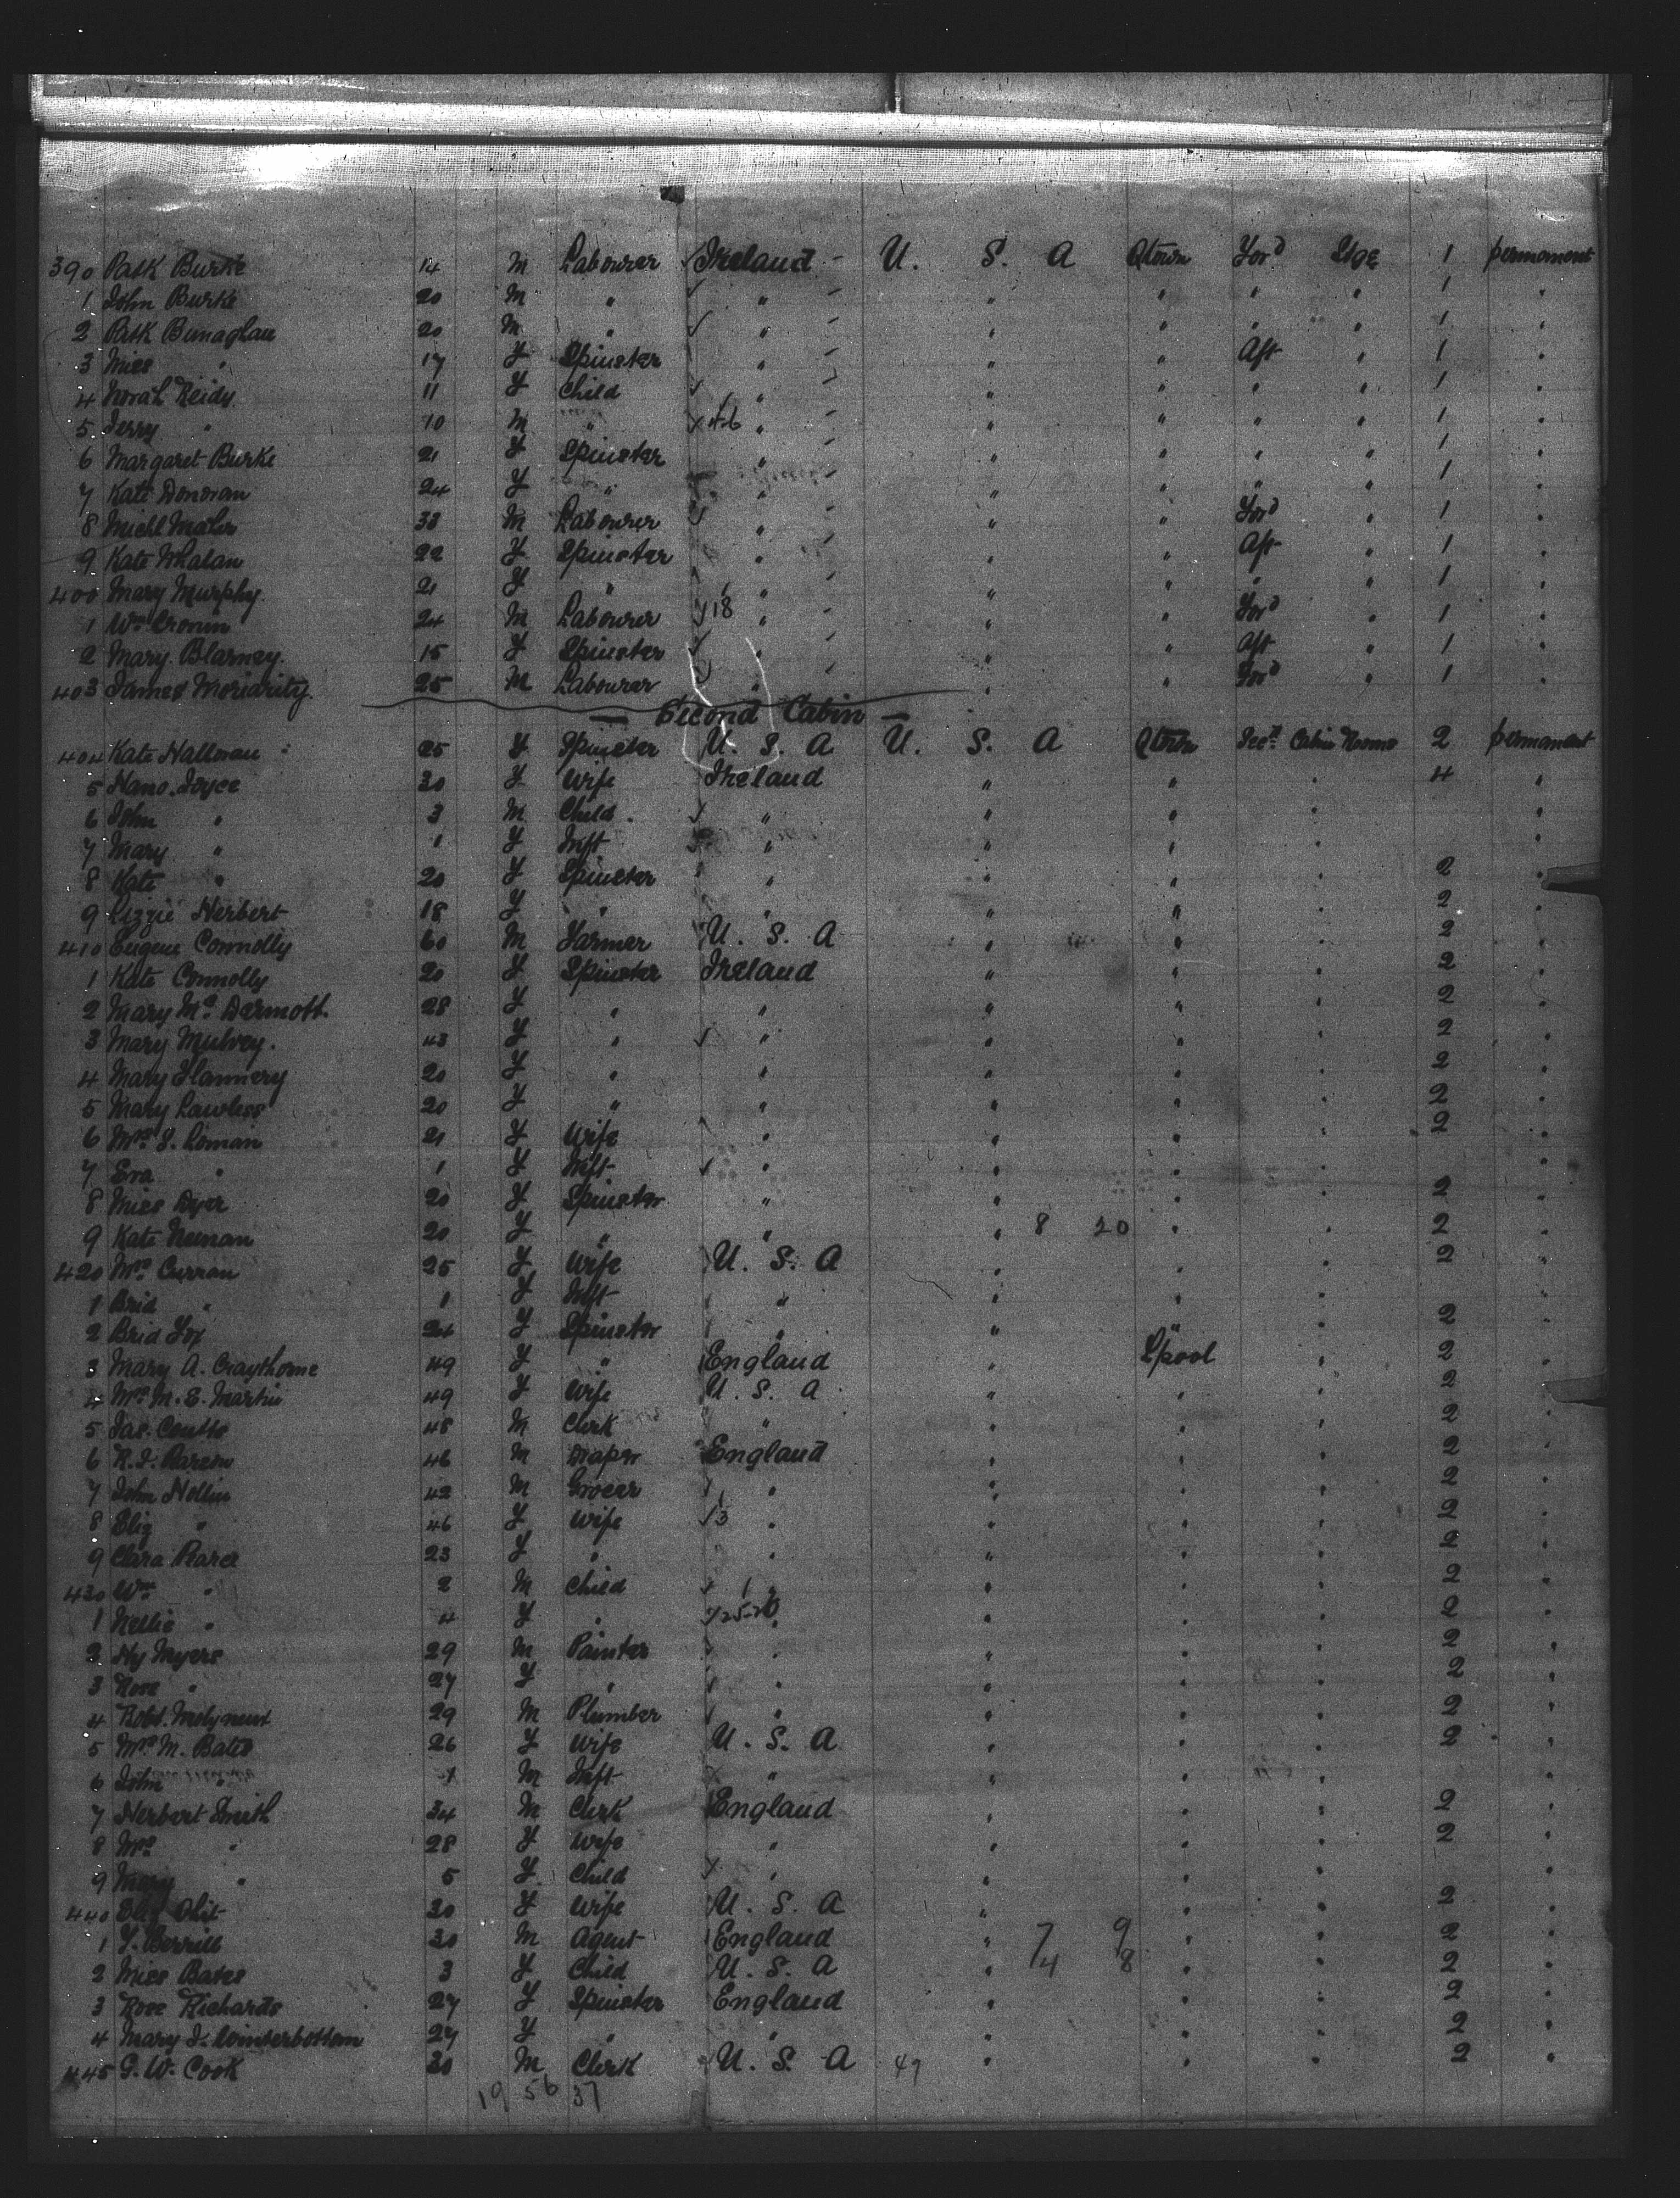 390 Patk Burke 14 M Labourer Ireland U. S. A Qtown For'd Stge 1 permanent
1 John Burke 20 M " " " " " " 1 "
2 Patk 20 M " " " " " " 1 "
3 Miss " 17 F Spinster " " " Aft " 1 "
4 Norah Reidy 11 F Child " " " " " 1 "
5 Jerry " 10 M " 46 " " " " " 1 "
6 Margaret Burke 21 F Spinster " " " " " 1 "
7 Kate Donovan 24 F " " " " " " 1 "
8 Michl 33 M Labourer " " " For'd " 1 "
9 Kate Whalan 22 F Spinster " " " Aft " 1 "
400 Mary Murphy. 21 F " " " " " " 1 "
1 Wm Cronin 24 M Labourer 18 " " " For'd " 1 "
2 Mary Blarney. 15 F Spinster " " " Aft " 1 "
403 James Moriarity. 25 M Labourer " " " For'd 1 "
— Second Cabin —
404 Kate 25 F Spinster U. S. A U. S. A Qtown Secd Cabin Rooms 2 permanent
5 Nano. Joyce 30 F Wife Ireland " " " 4 "
6 John " 3 M Child. " " " " "
7 Mary " 1 F Inft " " " " "
8 Kate " 20 F Spinster " " " " 2 "
9 Lizzie Herbert 18 F " " " " " 2 "
410 Eugene Connolly 60 M Farmer U. S. A " " " 2 "
1 Kate Connolly 20 F Spinster Ireland " " " 2 "
2 Mary Mc Dermott. 28 F " " " " " 2 "
3 Mary Mulvey. 43 F " " " " " 2 "
4 Mary Flannery 20 F " " " " " 2 "
5 Mary Lawless 20 F " " " " " 2 "
6 Mrs. S. 21 F Wife " " " " 2 "
7 Eva " 1 F Inft " " " " "
8 Miss Dyer 20 F Spinster " " " " 2 "
9 Kate 20 F " " " 8 20 " " 2 "
420 Mrs. Curran 25 F Wife U. S. A " " " 2 "
1 Brid " 1 F Inft " " " " "
2 Brid Fox 24 F Spinster " " " " 2 "
3 Mary A. Craythorne 49 F " England " L'pool " 2 "
4 Mrs. M. E. Martin 49 F Wife U. S. A " " " 2 "
5 Jas. Coutts 48 M Clerk " " " " 2 "
6 46 M Draper England " " " 2 "
7 John 42 M Grocer " " " " 2 "
8 Eliz " 46 F Wife 3 " " " " 2 "
9 Clara 23 F " " " " " 2 "
430 Wm " 2 M Child " " " " 2 "
1 Nellie " 4 F " 25-26 " " " " 2 "
2 Hy Myers 29 M Painter " " " " 2 "
3 Rose " 27 F " " " " " 2 "
4 Robt. 29 M Plumber " " " " 2 "
5 Mrs M. Bates 26 F Wife U. S. A " " " 2 "
6 John " 1 M Inft " " " " "
7 Herbert Smith 34 M Clerk England " " " 2 "
8 Mrs " 28 F Wife " " " " 2 "
9 Mary " 5 F. Child " " " " "
440 30 F Wife U. S. A " " " 2 "
1 30 M Agent England " 7 9 " " 2 "
2 Miss Bates 3 F Child U. S. A " 4 8 " " 2 "
3 Rose Richards 27 F Spinster England " " " 2 "
4 Mary J. Winterbottom 27 F " " " " " 2 "
445 G. W. Cook 30 M Clerk U. S. A 49 " " " 2 "
19 56 37